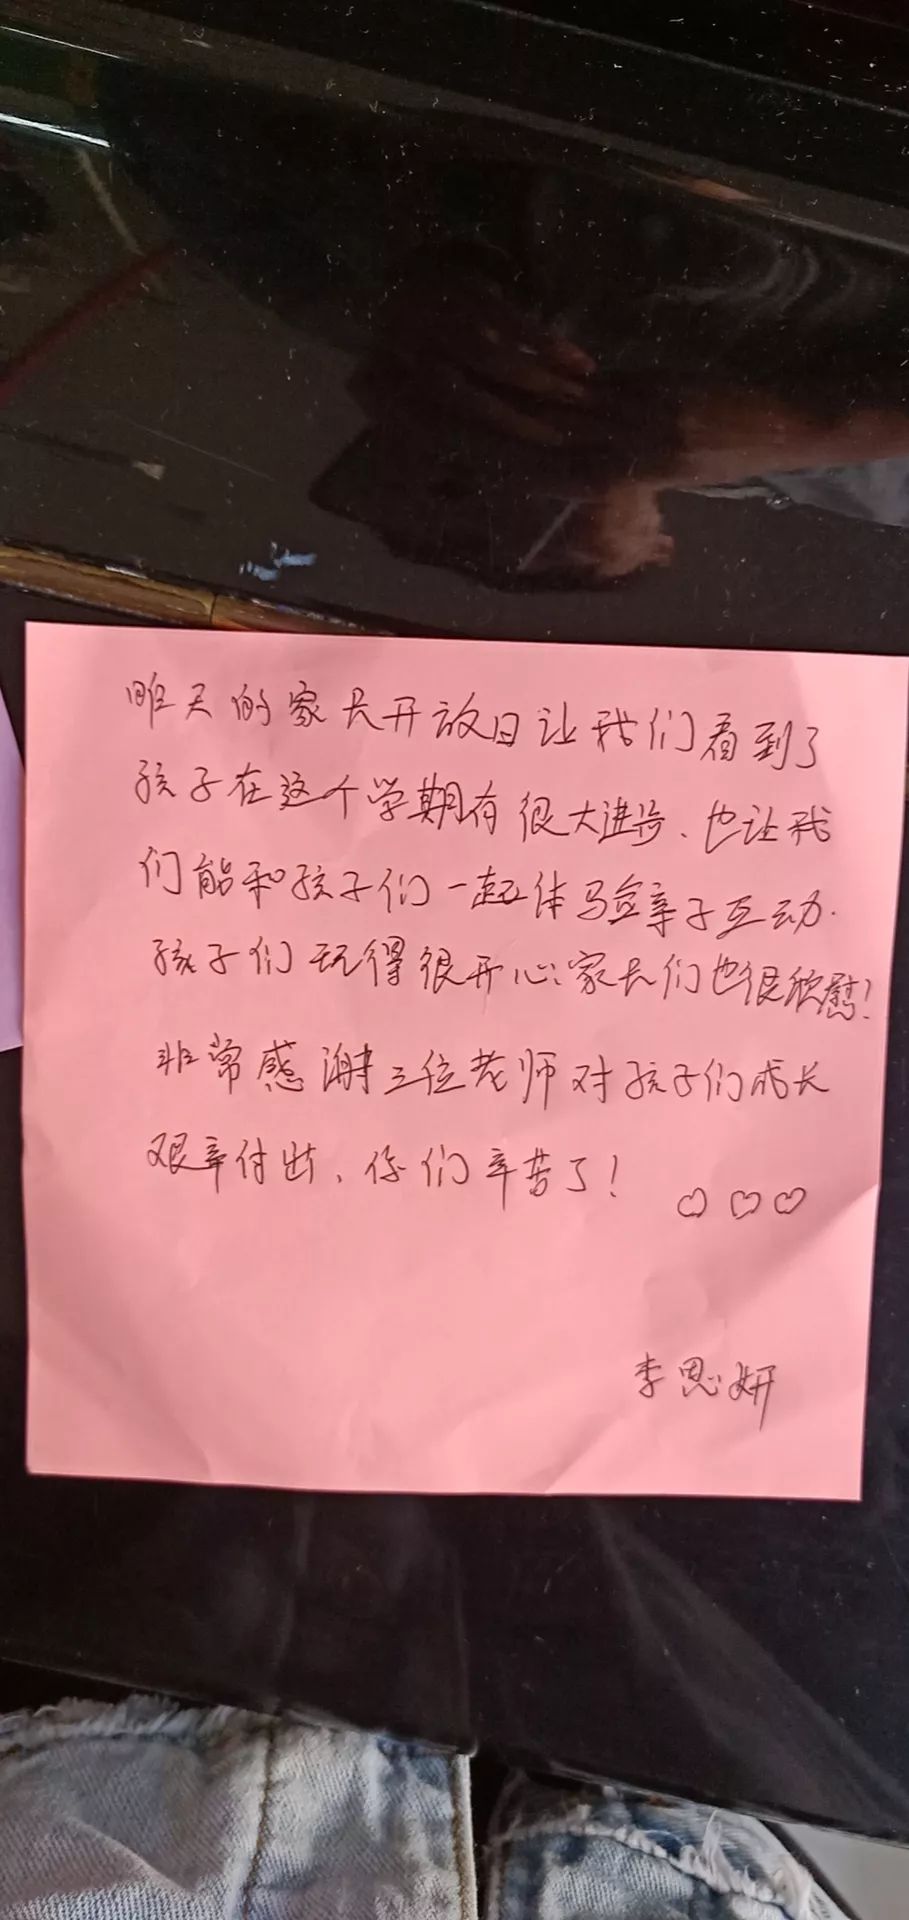 昨天的家长开放日让我们看到了
孩子在这个学期有很大进步、也让我
们能和孩子们一起体验亲子互动.
孩子们玩得很开心,家长们也很欣慰!
非常感谢三位老师对孩子们成长
艰辛付出、你们辛苦了!
李思妍